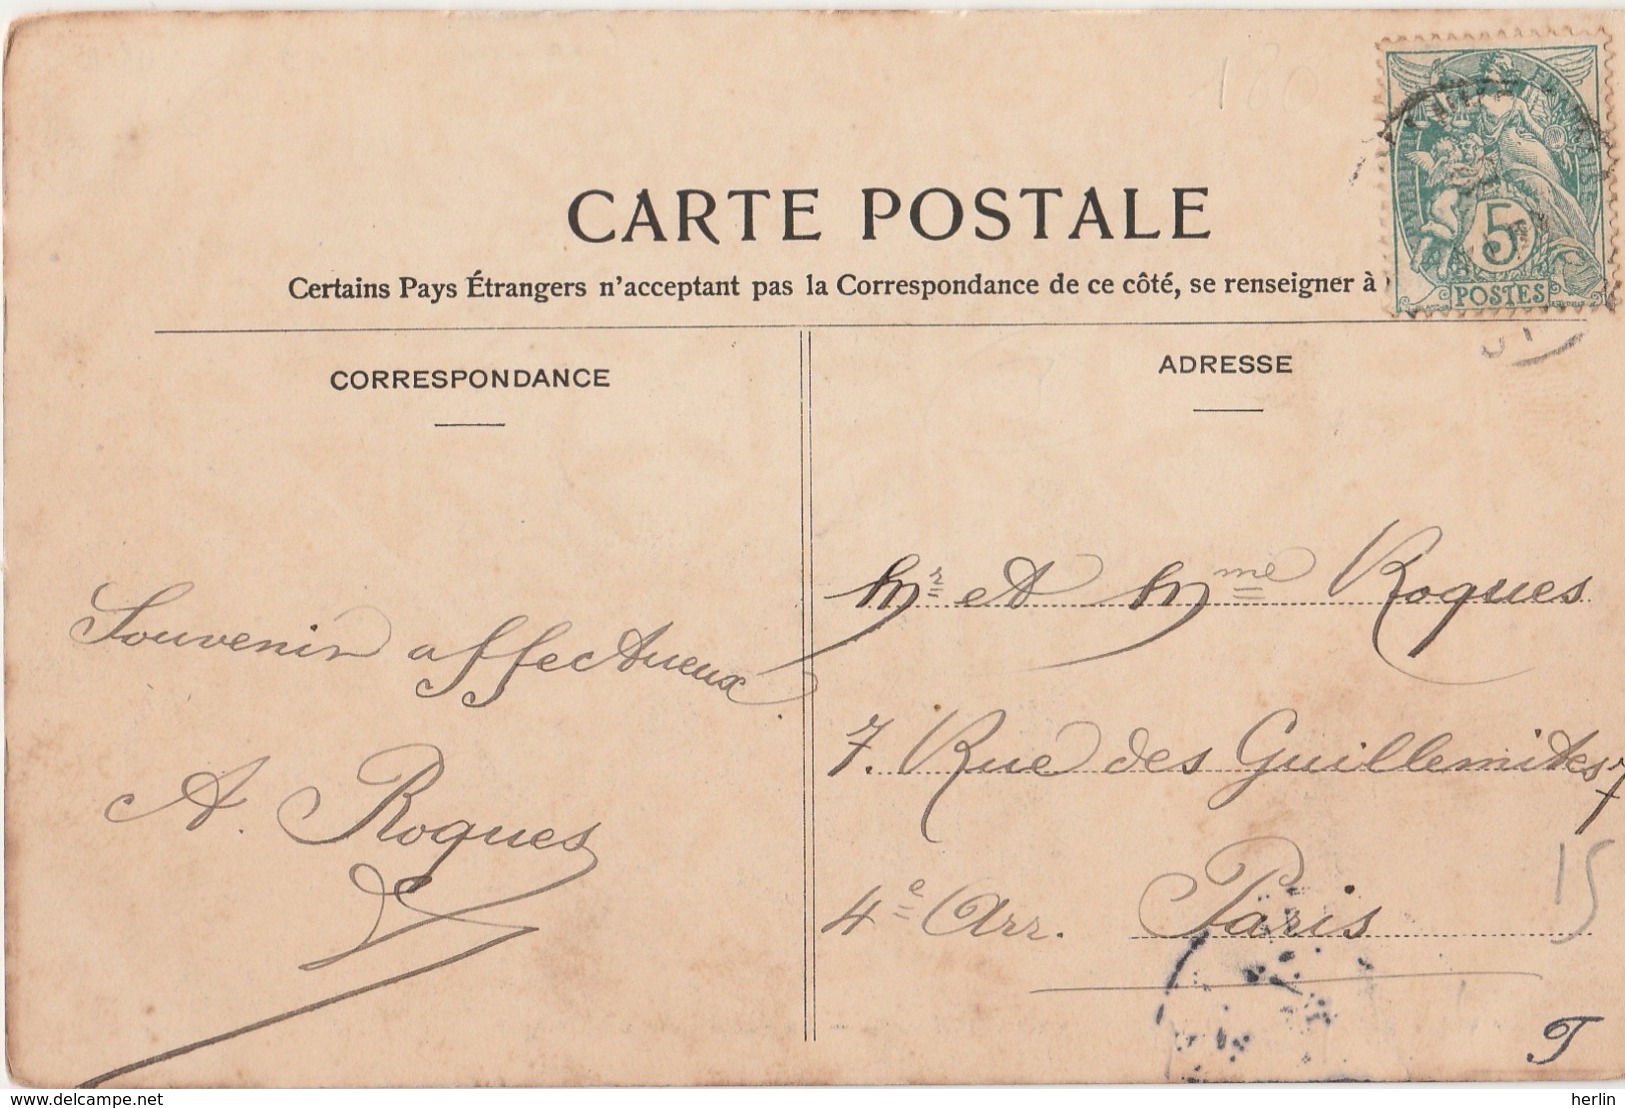 180
CARTE POSTALE
Certains Pays Étrangers n'acceptant pas la Correspondance de ce côté, se renseigner à
5
POSTES
CORRESPONDANCE
Souvenir affectueux
A. Roques
ADRESSE
Mr et Mme Roques
7. Rue des Guillemites 7
4e Arr. Paris
15
T
delcampe.net
herlin